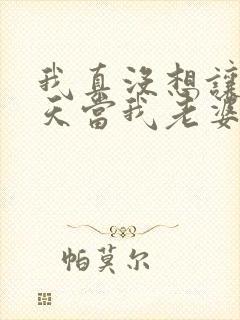 我真沒想讓
天當我老婆
帕莫尔